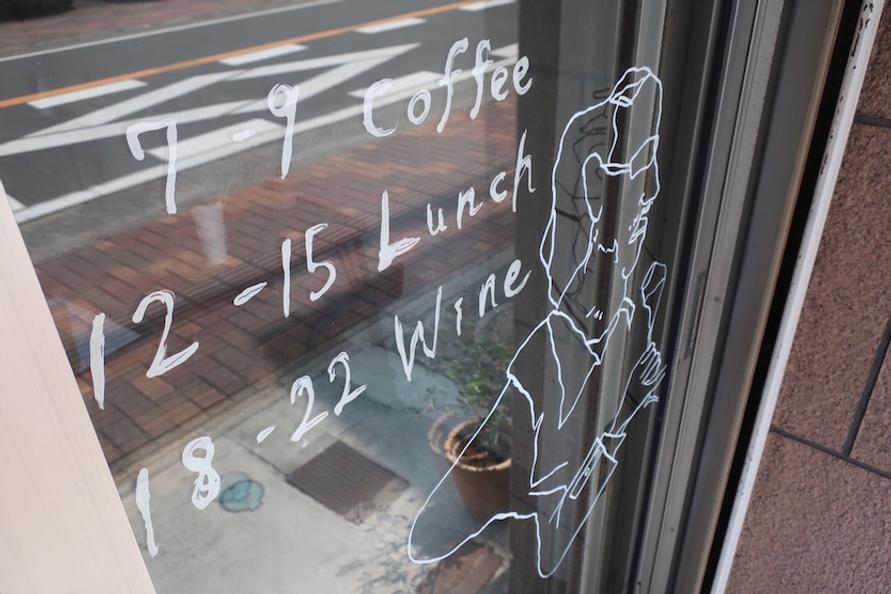 7-9 Coffee
12-15 Lunch
18-22 Wine